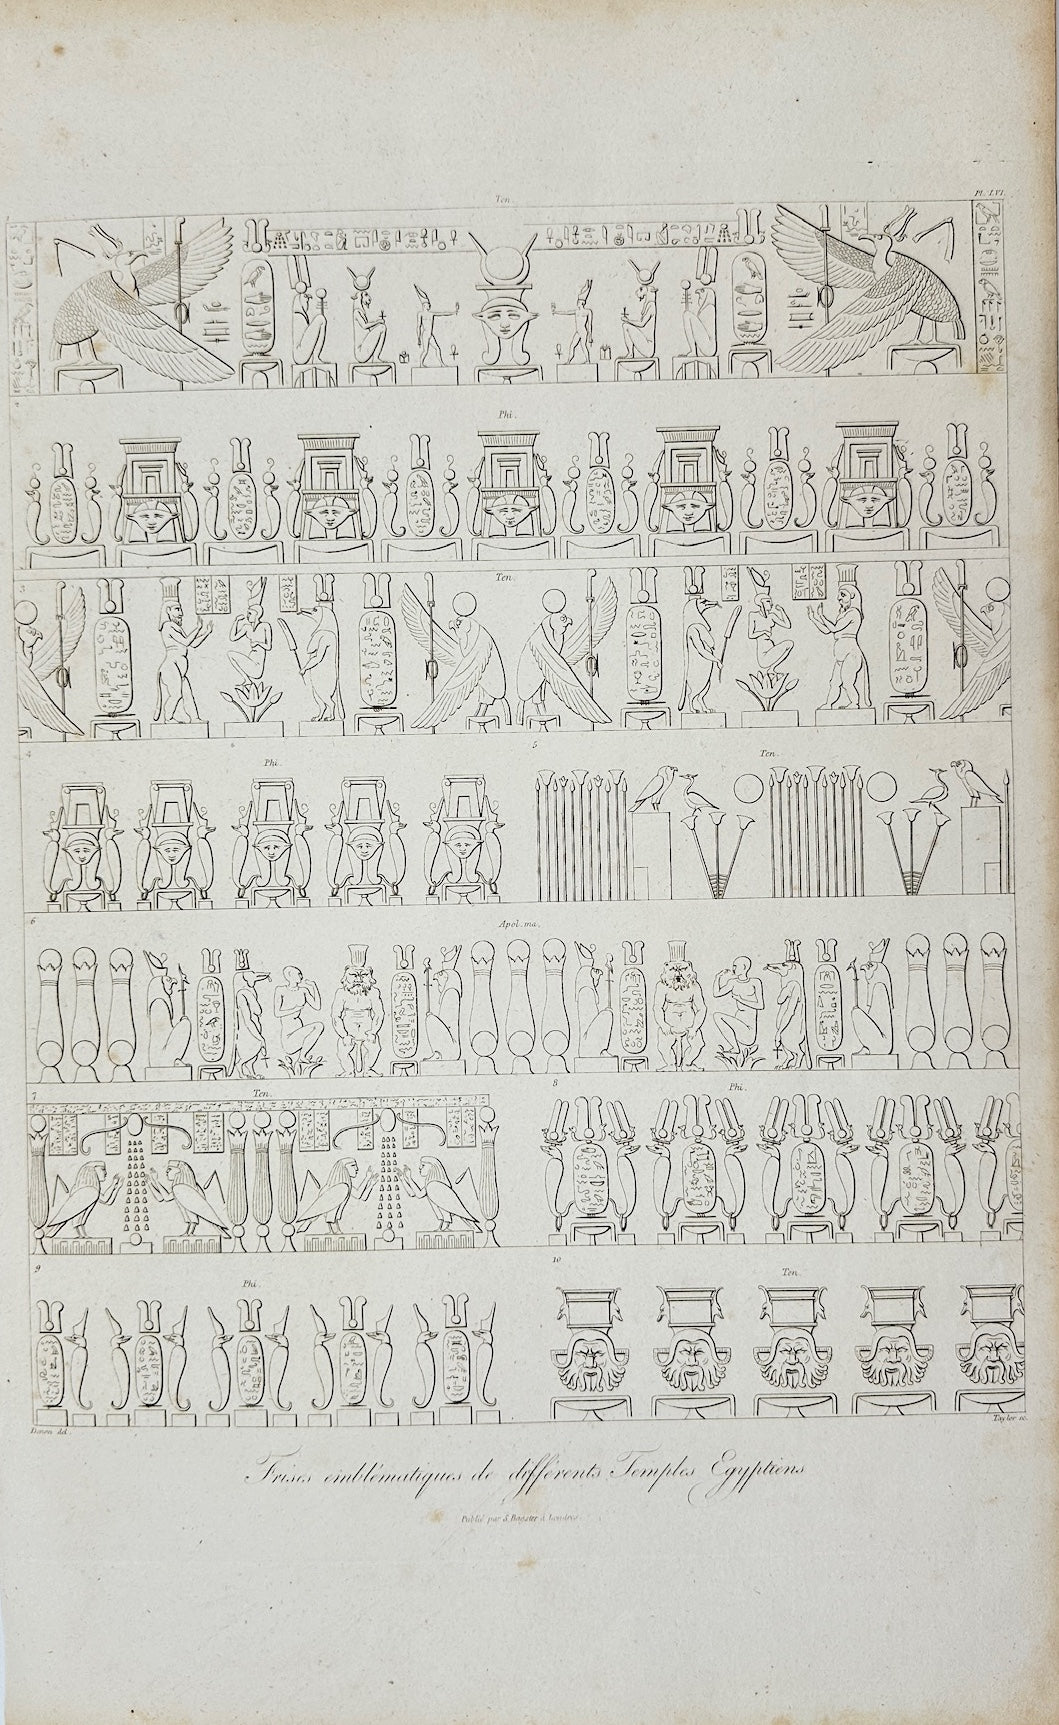 Pl. LVI.
1 Ten.
2 Phi.
3 Ten.
4 6 Phi. 5 Ten.
6 Apol. ma.
7 Ten. 8 Phi.
9 Phi. 10 Ten.
Denon del. Taylor sc.
Frises emblématiques de différents Temples Egyptiens
Publié par S. Bagster à Londres.